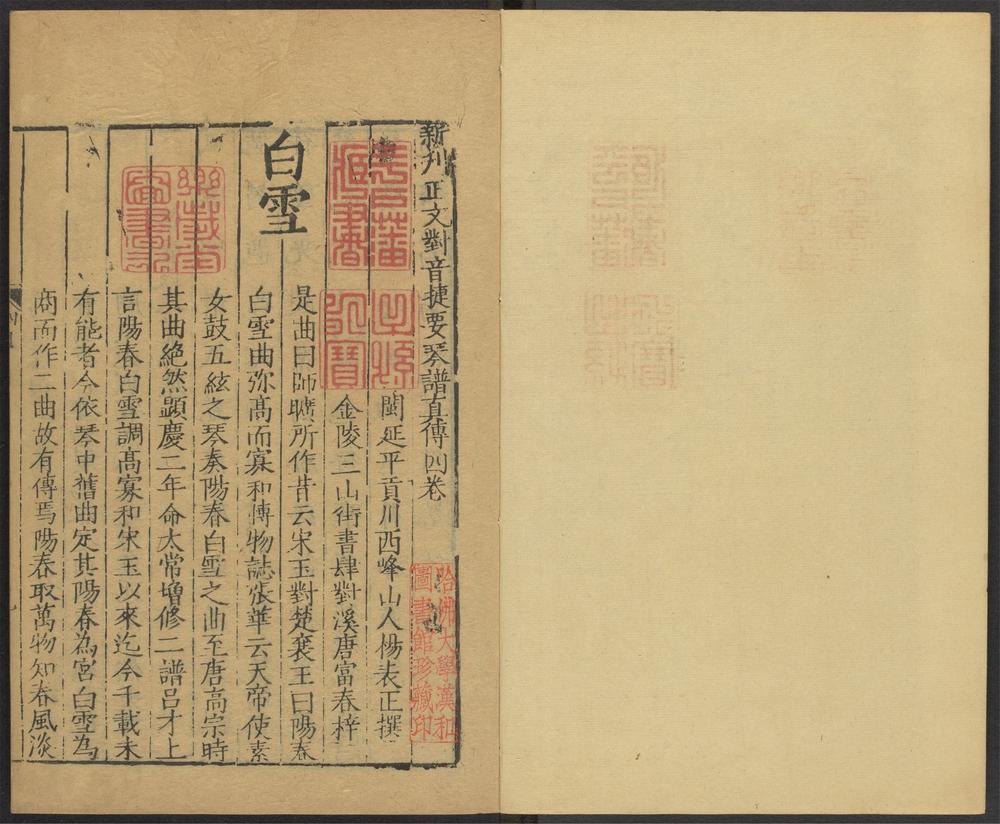 新刊正文對音捷要琴譜真傳四卷
閩延平貢川西峰山人楊表正撰
金陵三山街書肆對溪唐富春梓
白雪
是曲曰師曠所作昔云宋玉對楚襄王曰陽春
白雪曲弥髙而寡和愽物誌張華云天帝使素
女鼓五絃之琴奏陽春白雪之曲至唐高宗時
其曲絶然顕慶二年命太常增修二譜吕才上
言陽春白雪調髙寡和宋玉以來迄今千載未
有能者今依琴中舊曲定其陽春為宮白雪為
商而作二曲故有傳焉陽春取萬物知春風淡
哈佛大學漢和
圖書館珍藏印